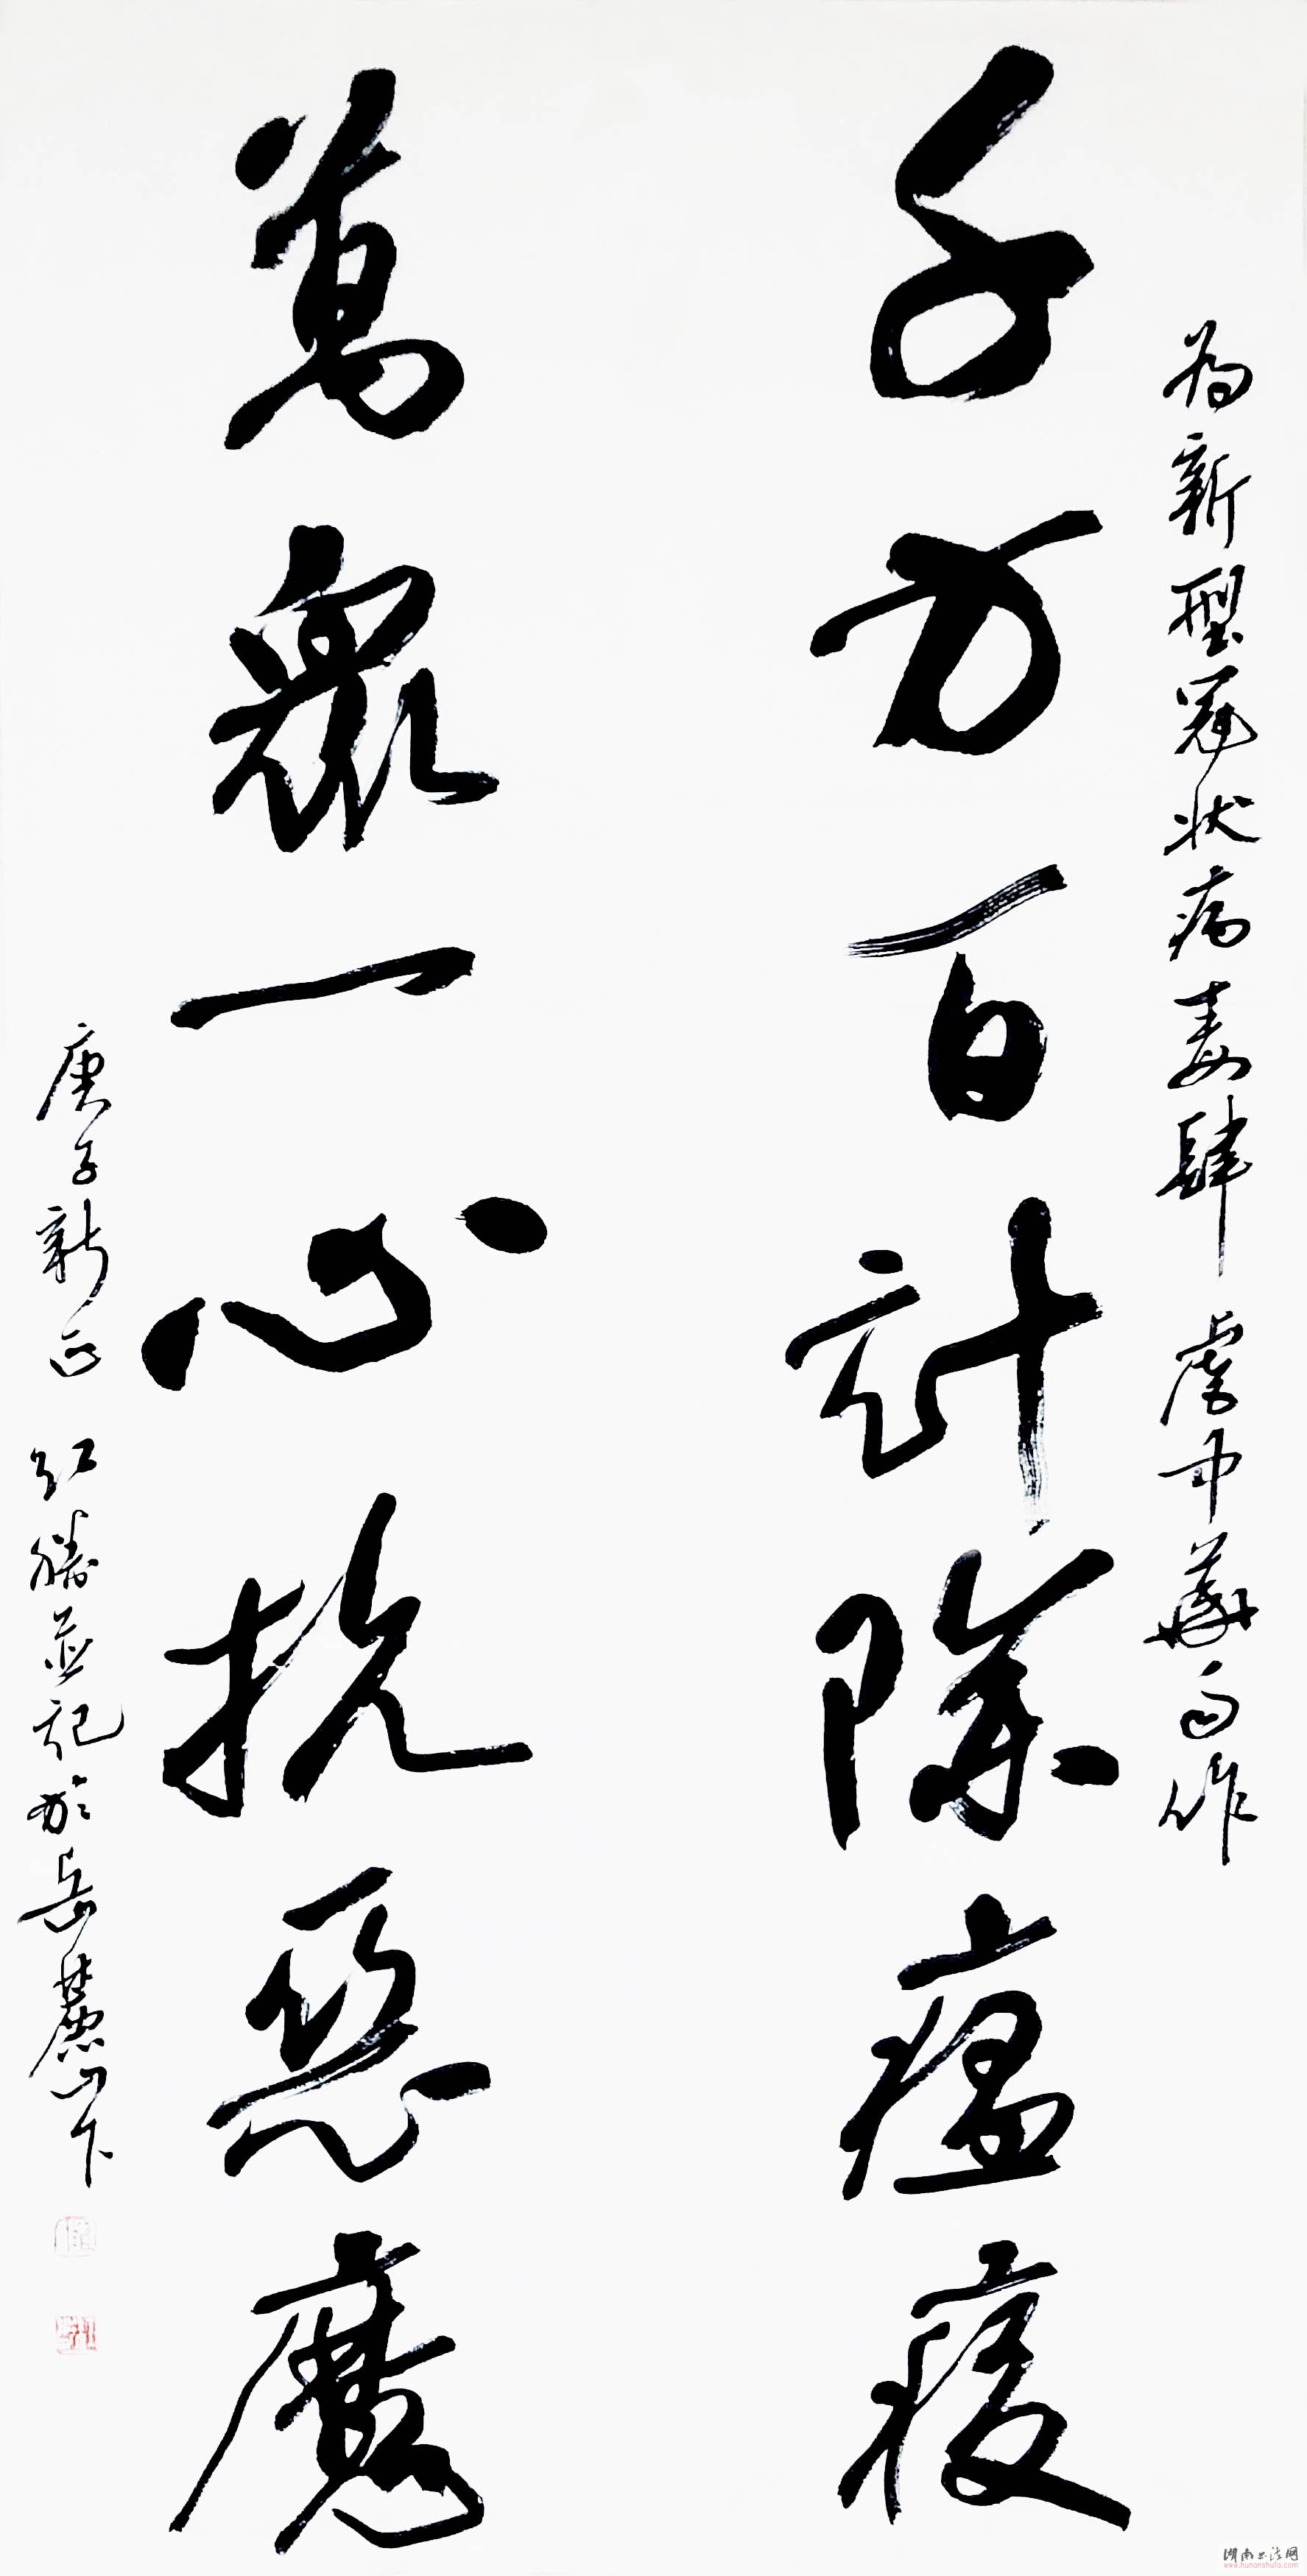 为新型冠状病毒肆虐中华而作
千方百计除瘟疫
萬衆一心抗惡魔
庚子新正 红勝並記於岳麓山下
湖南书法网
www.hunanshufa.com